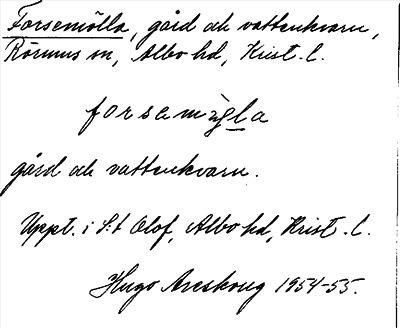 Forsemölla, gård och vattenkvarn,
Rörums sn, Albo hd, Krist. l.
forsemⱥ̀gla
gård och vattenkvarn.
Uppt. i S:t Olof, Albo hd, Krist. l.
Hugo Areskoug 1954-55.